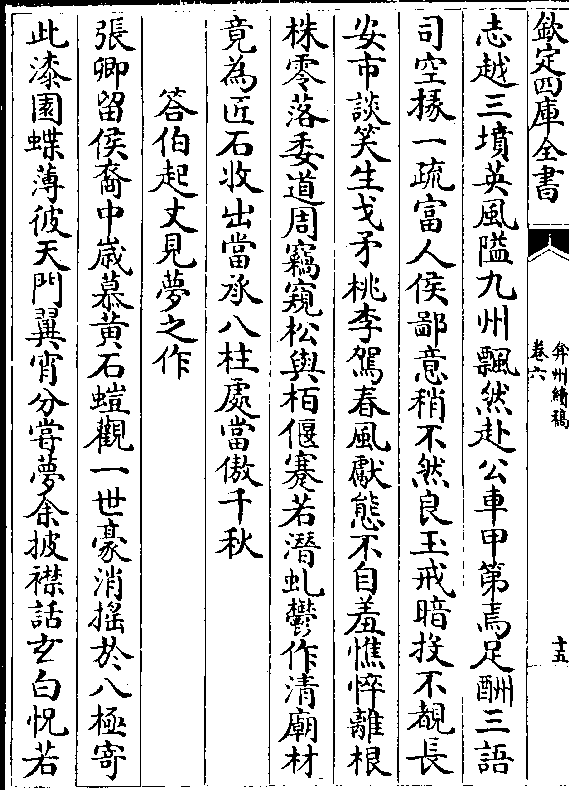 欽定四庫全書
弇州續稿
卷六
十五
志越三墳英風隘九州飄然赴公車甲第焉足酬三語
司空掾一疏富人侯鄙意稍不然良玉戒暗投不覩長
安市談笑生戈矛桃李駕春風獻態不自羞憔悴離根
株零落委道周竊窺松與栢偃蹇若潛虬鬱作清廟材
竟為匠石收出當承八柱處當傲千秋
答伯起丈見夢之作
張卿留侯裔中歲慕黃石螘觀一世豪消搖於八極寄
此漆園蝶薄彼天門翼宵分嘗夢余披襟話玄白怳若